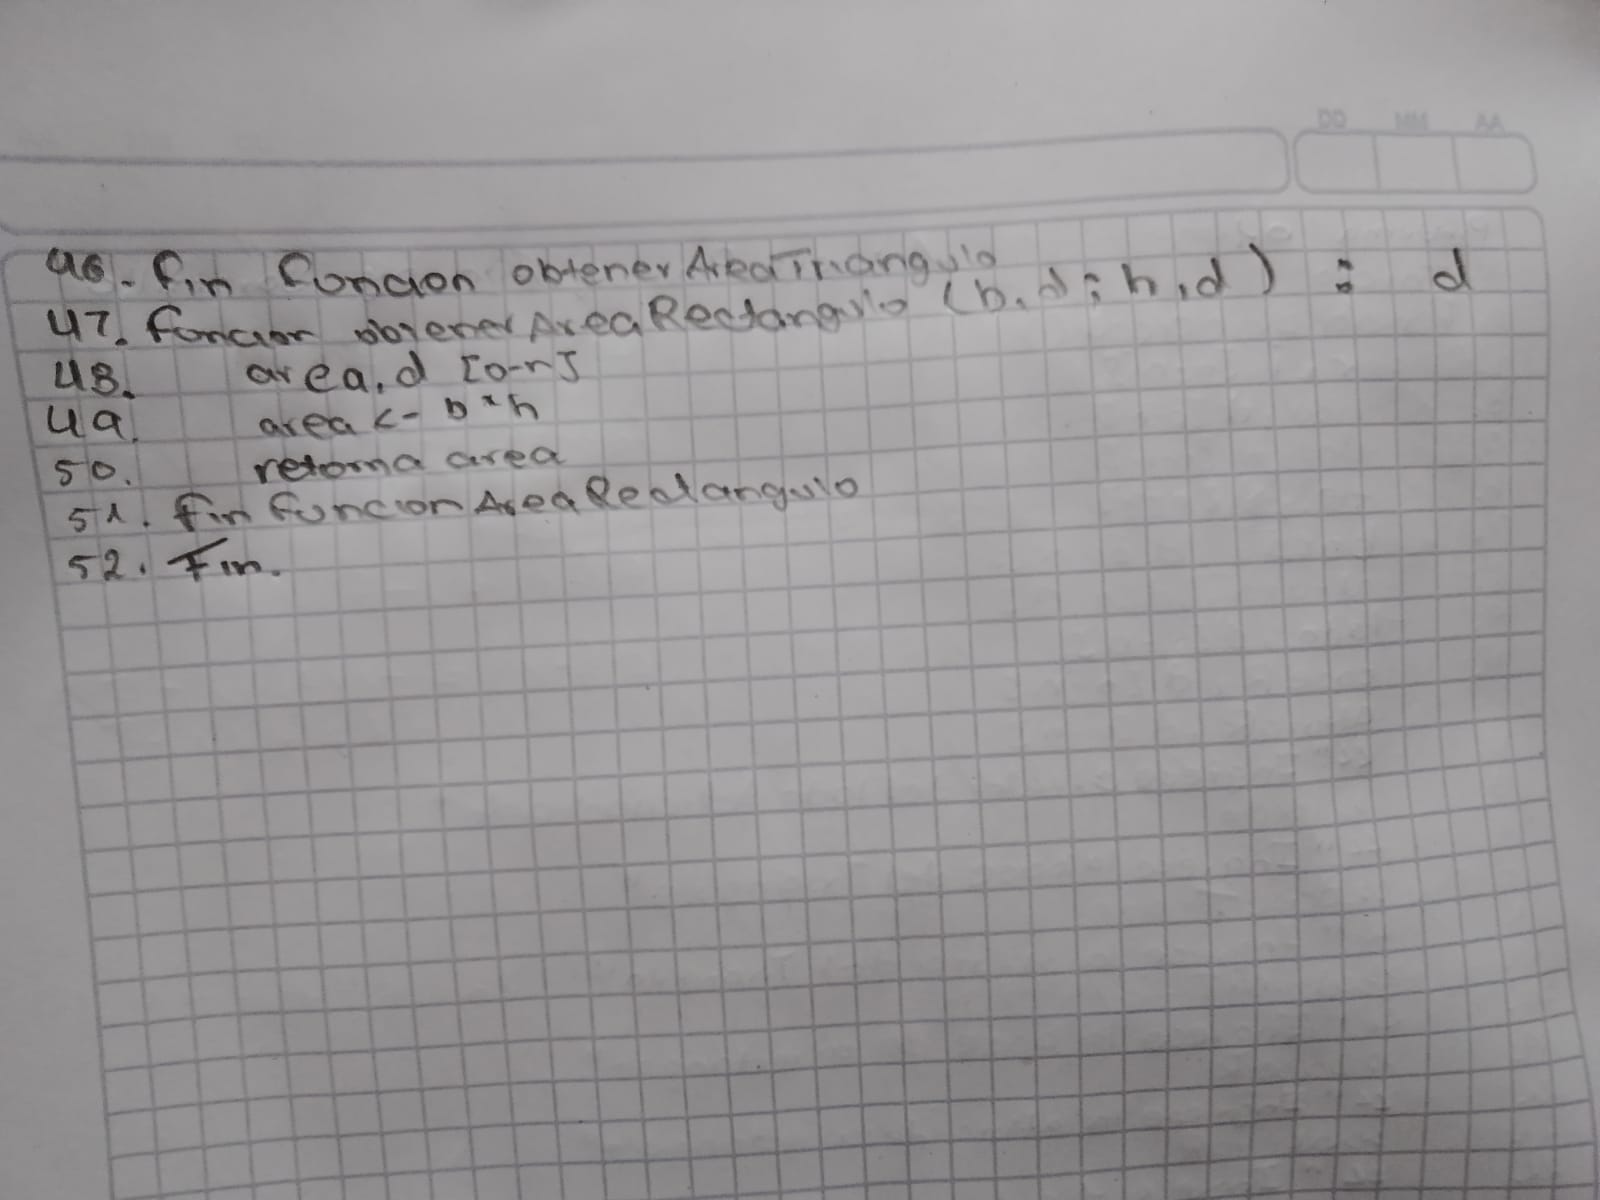 DD MM AA
46. fin funcion obtenerAreaTriangulo
47. funcion obtenerAreaRectangulo (b,d; h,d) : d
48. area,d [0-n]
49. area <- b*h
50. retorna area
51. fin funcion AreaRectangulo
52. Fin.